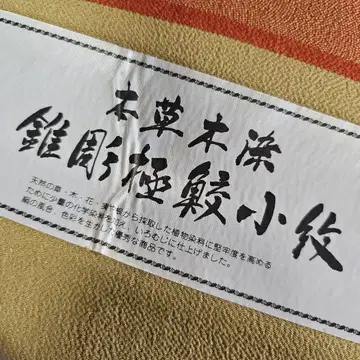 本草木染
錐彫極鮫小紋
天然の草・木・花・実や根から採取した植物染料に堅牢度を高める
ために少量の化学染料を加え、いろむじに仕上げました。
絹の風合、色彩を生かした優秀な商品です。